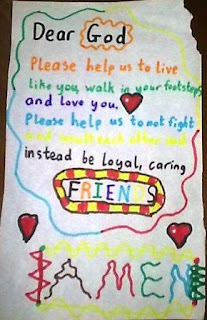 Dear God
Please help us to live
like you, walk in your footsteps
and love you.
Please help us to not fight
and insult each other and
instead be loyal, caring
FRIENDS
AMEN